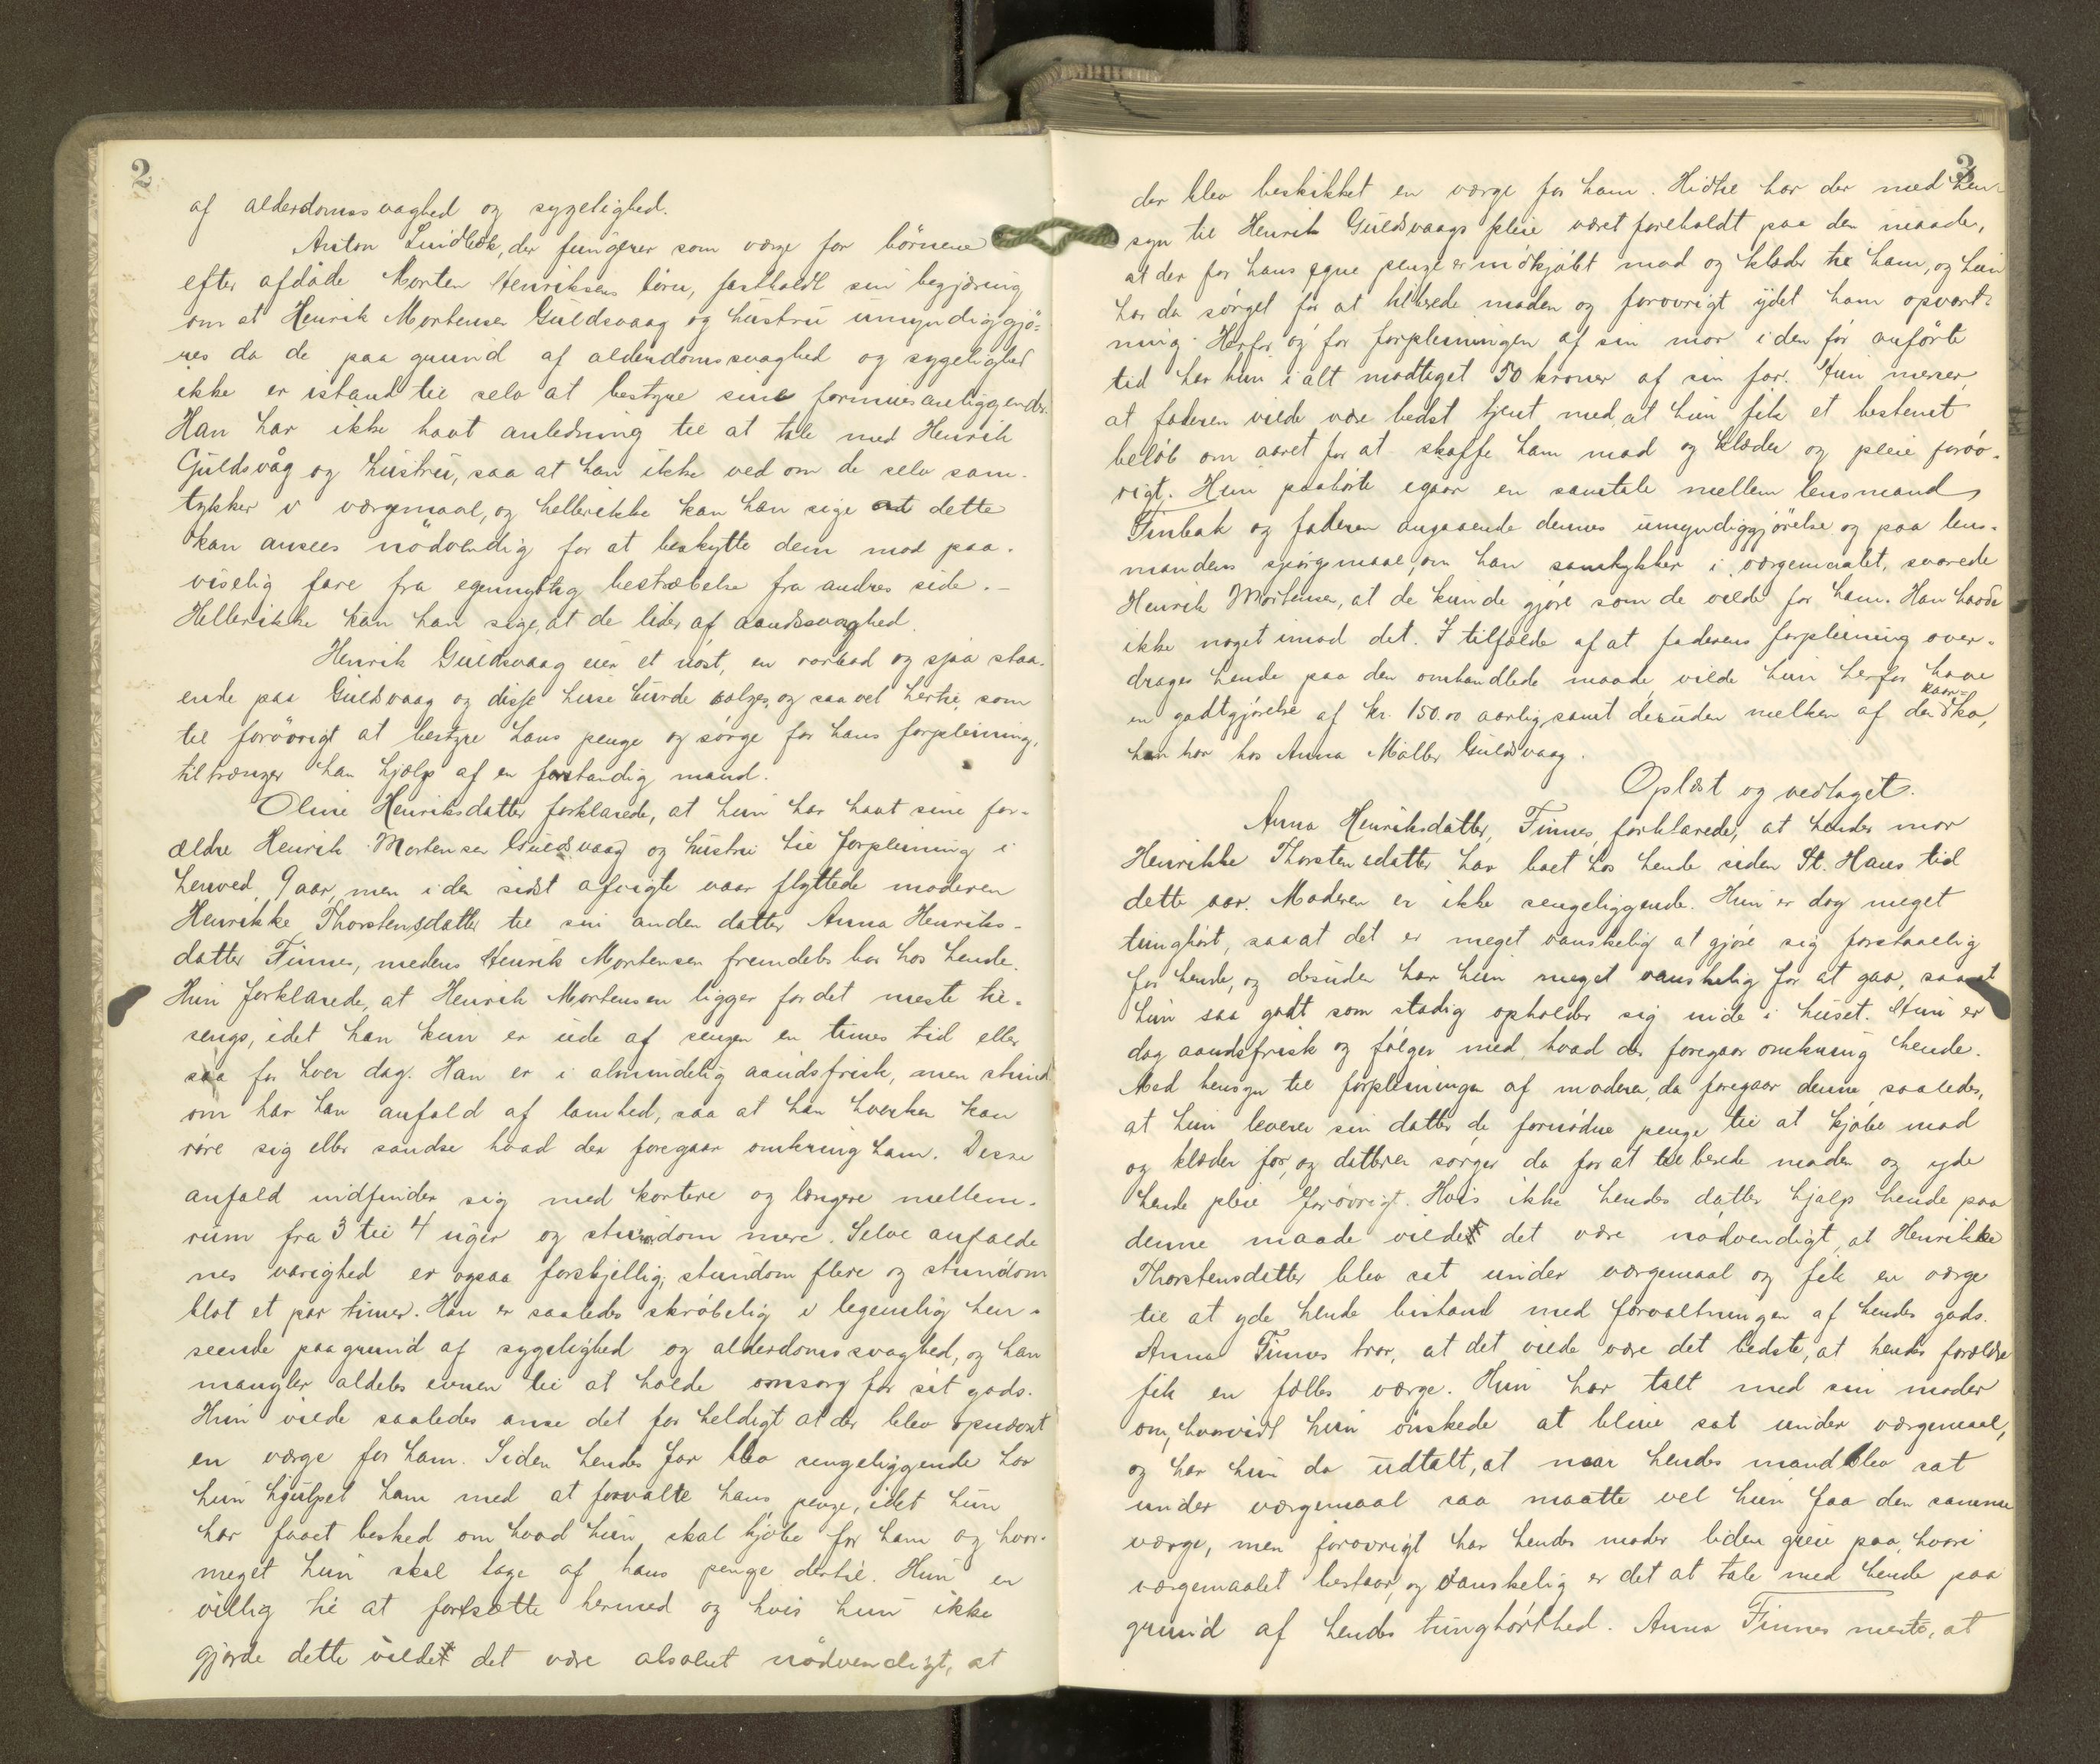 2
af alderdomssvaghed og sygelighed.
Anton Lindbæk, der fungerer som værge for börnene
efter afdøde Morten Henriksens börn, fastholdt sin begjæring
om at Henrik Mortensen Guldsvaag og hustru umyndiggjö-
res da de paa grund af alderdomssvaghed og sygelighed
ikke er istand til selv at bestyre sine formuesanliggender.
Han har ikke havt anledning til at tale med Henrik
Guldsvåg og hustru, saa at han ikke ved om de selv sam-
tykker i værgemaal, og hellerikke kan han sige at dette
kan ansees nödvendig for at beskytte dem mod paa-
viselig fare fra egennyttig bestræbelse fra andres side. -
Hellerikke kan han sige, at de lider af aandssvaghed.
Henrik Guldsvaag eier et nöst, en rorbod og sjaa staa-
ende paa Guldsvaag og disse huse burde sælges, og saavel hertil, som
til forövrigt at bestyre hans penge og sörge for hans forpleining,
tiltrænger han hjælp af en forstandig mand.
Oline Henriksdatter forklarede, at hun har havt sine for-
ældre Henrik Mortensen Guldsvaag og hustru til forpleining i
henved 9 aar, men i den sidst afvigte vaar flyttede moderen
Henrikke Thorstensdatter til sin anden datter Anna Henriks-
datter Finnes, medens Henrik Mortensen fremdeles bor hos hende.
Hun forklarede, at Henrik Mortensen ligger for det meste til-
sengs, idet han kun er ude af sengen en times tid eller
saa for hver dag. Han er i almindelig aandsfrisk, men stund
om har han anfald af lamhed, saa at han hverken kan
röre sig eller sandse hvad der foregaar omkring ham. Disse
anfald indfinder sig med kortere og længere mellem-
rum fra 3 til 4 uger og stundom mere. Selve anfalde
nes varighed er ogsaa forskjellig, stundom flere og stundom
blot et par timer. Han er saaledes skröbelig i legemlig hen-
seende paa grund af sygelighed og alderdomssvaghed, og han
mangler aldeles evnen til at holde omsorg for sit gods.
Hun vilde saaledes anse det for heldigt at der blev opnævnt
en værge for ham. Siden hendes far blev sengeliggende har
hun hjulpet ham med at forvalte hans penge, idet hun
har faaet besked om hvad hun skal kjöbe for ham og hvor-
meget hun skal tage af hans penge dertil. Hun er
villig til at fortsætte hermed og hvis hun ikke
gjorde dette vilde det være absolut nödvendigt, at
3
der blev beskikket en værge for ham. Hidtil har der med hen-
syn til Henrik Guldsvaags pleie været forholdt paa den maade,
at der for hans egne penge er indkjöbt mad og klæder til ham, og hun
har da sörget for at tilberede maden og forovrigt ydet ham opvart-
ning. Herfor og for forpleiningen af sin mor i den för anförte
tid har hun i alt modtaget 50 kroner af sin far. Hun mener,
at faderen vilde være bedst tjent med, at hun fik et bestemt
belöb om aaret for at skaffe ham mad og klæder og pleie foröv-
rigt. Hun paahörte igaar en samtale mellem lensmand
Finbak og faderen angaaende dennes umyndiggjörelse og paa lens-
mandens spörgsmaal, om han samtykker i værgemaalet, svarede
Henrik Mortensen, at de kunde gjöre som de vilde for ham. Han havde
ikke noget imod det. I tilfælde af at faderens forpleining over-
drages hende paa den omhandlede maade, vilde hun herfor have
en godtgjörelse af kr. 150.00 aarlig samt desuden melken af den kaar-ko,
han har hos Anna Möller Guldsvaag.
Oplæst og vedtaget.
Anna Henriksdatter, Finnes, forklarede, at hendes mor
Henrikke Thorstensdatter har boet hos hende siden St. Hans tid
dette aar. Moderen er ikke sengeliggende. Hun er dog meget
tunghört, saaat det er meget vanskelig at gjöre sig forstaaelig
for hende, og desuden har hun meget vanskelig for at gaa, saaat
hun saa godt som stadig opholder sig inde i huset. Hun er
dog aandsfrisk og fölger med hvad der foregaar omkring hende.
Med hensyn til forpleiningen af moderen, da foregaar denne saaledes,
at hun leverer sin datter de fornödne penge til at kjöbe mad
og klæder for, og datteren sörger da for at tilberede maden og yde
hende pleie forövrigt. Hvis ikke hendes datter hjalp hende paa
denne maade vilde det være nödvendigt, at Henrikke
Thorstensdatter blev sat under værgemaal og fik en værge
til at yde hende bistand med forvaltningen af hendes gods.
Anna Finnes tror, at det vilde være det bedste, at hendes forældre
fik en fælles værge. Hun har talt med sin moder
om, hvorvidt hun önskede at blive sat under værgemaal,
og har hun da udtalt, at naar hendes mand blev sat
under værgemaal saa maatte vel hun faa den samme
værge, men forovrigt har hendes moder liden greie paa, hvori
værgemaalet bestaar, og vanskelig er det at tale med hende paa
grund af hendes tunghörthed. Anna Finnes mente, at